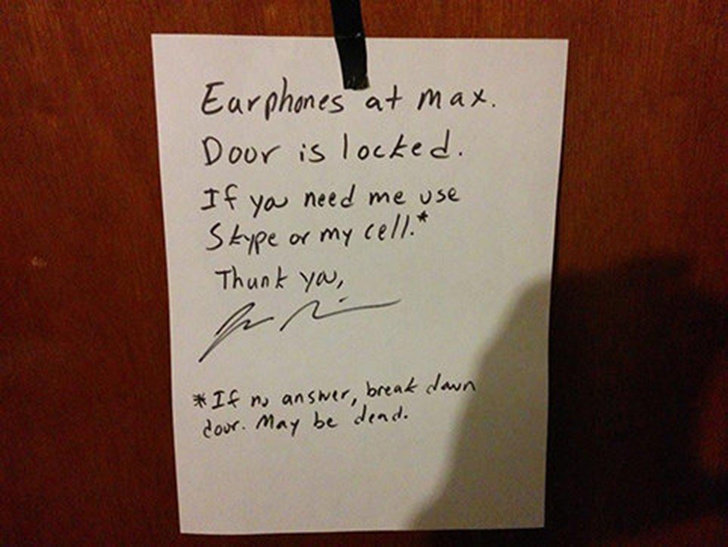 Earphones at max.
Door is locked.
If you need me use
Skype or my cell.*
Thank you,
*If no answer, break down
door. May be dead.